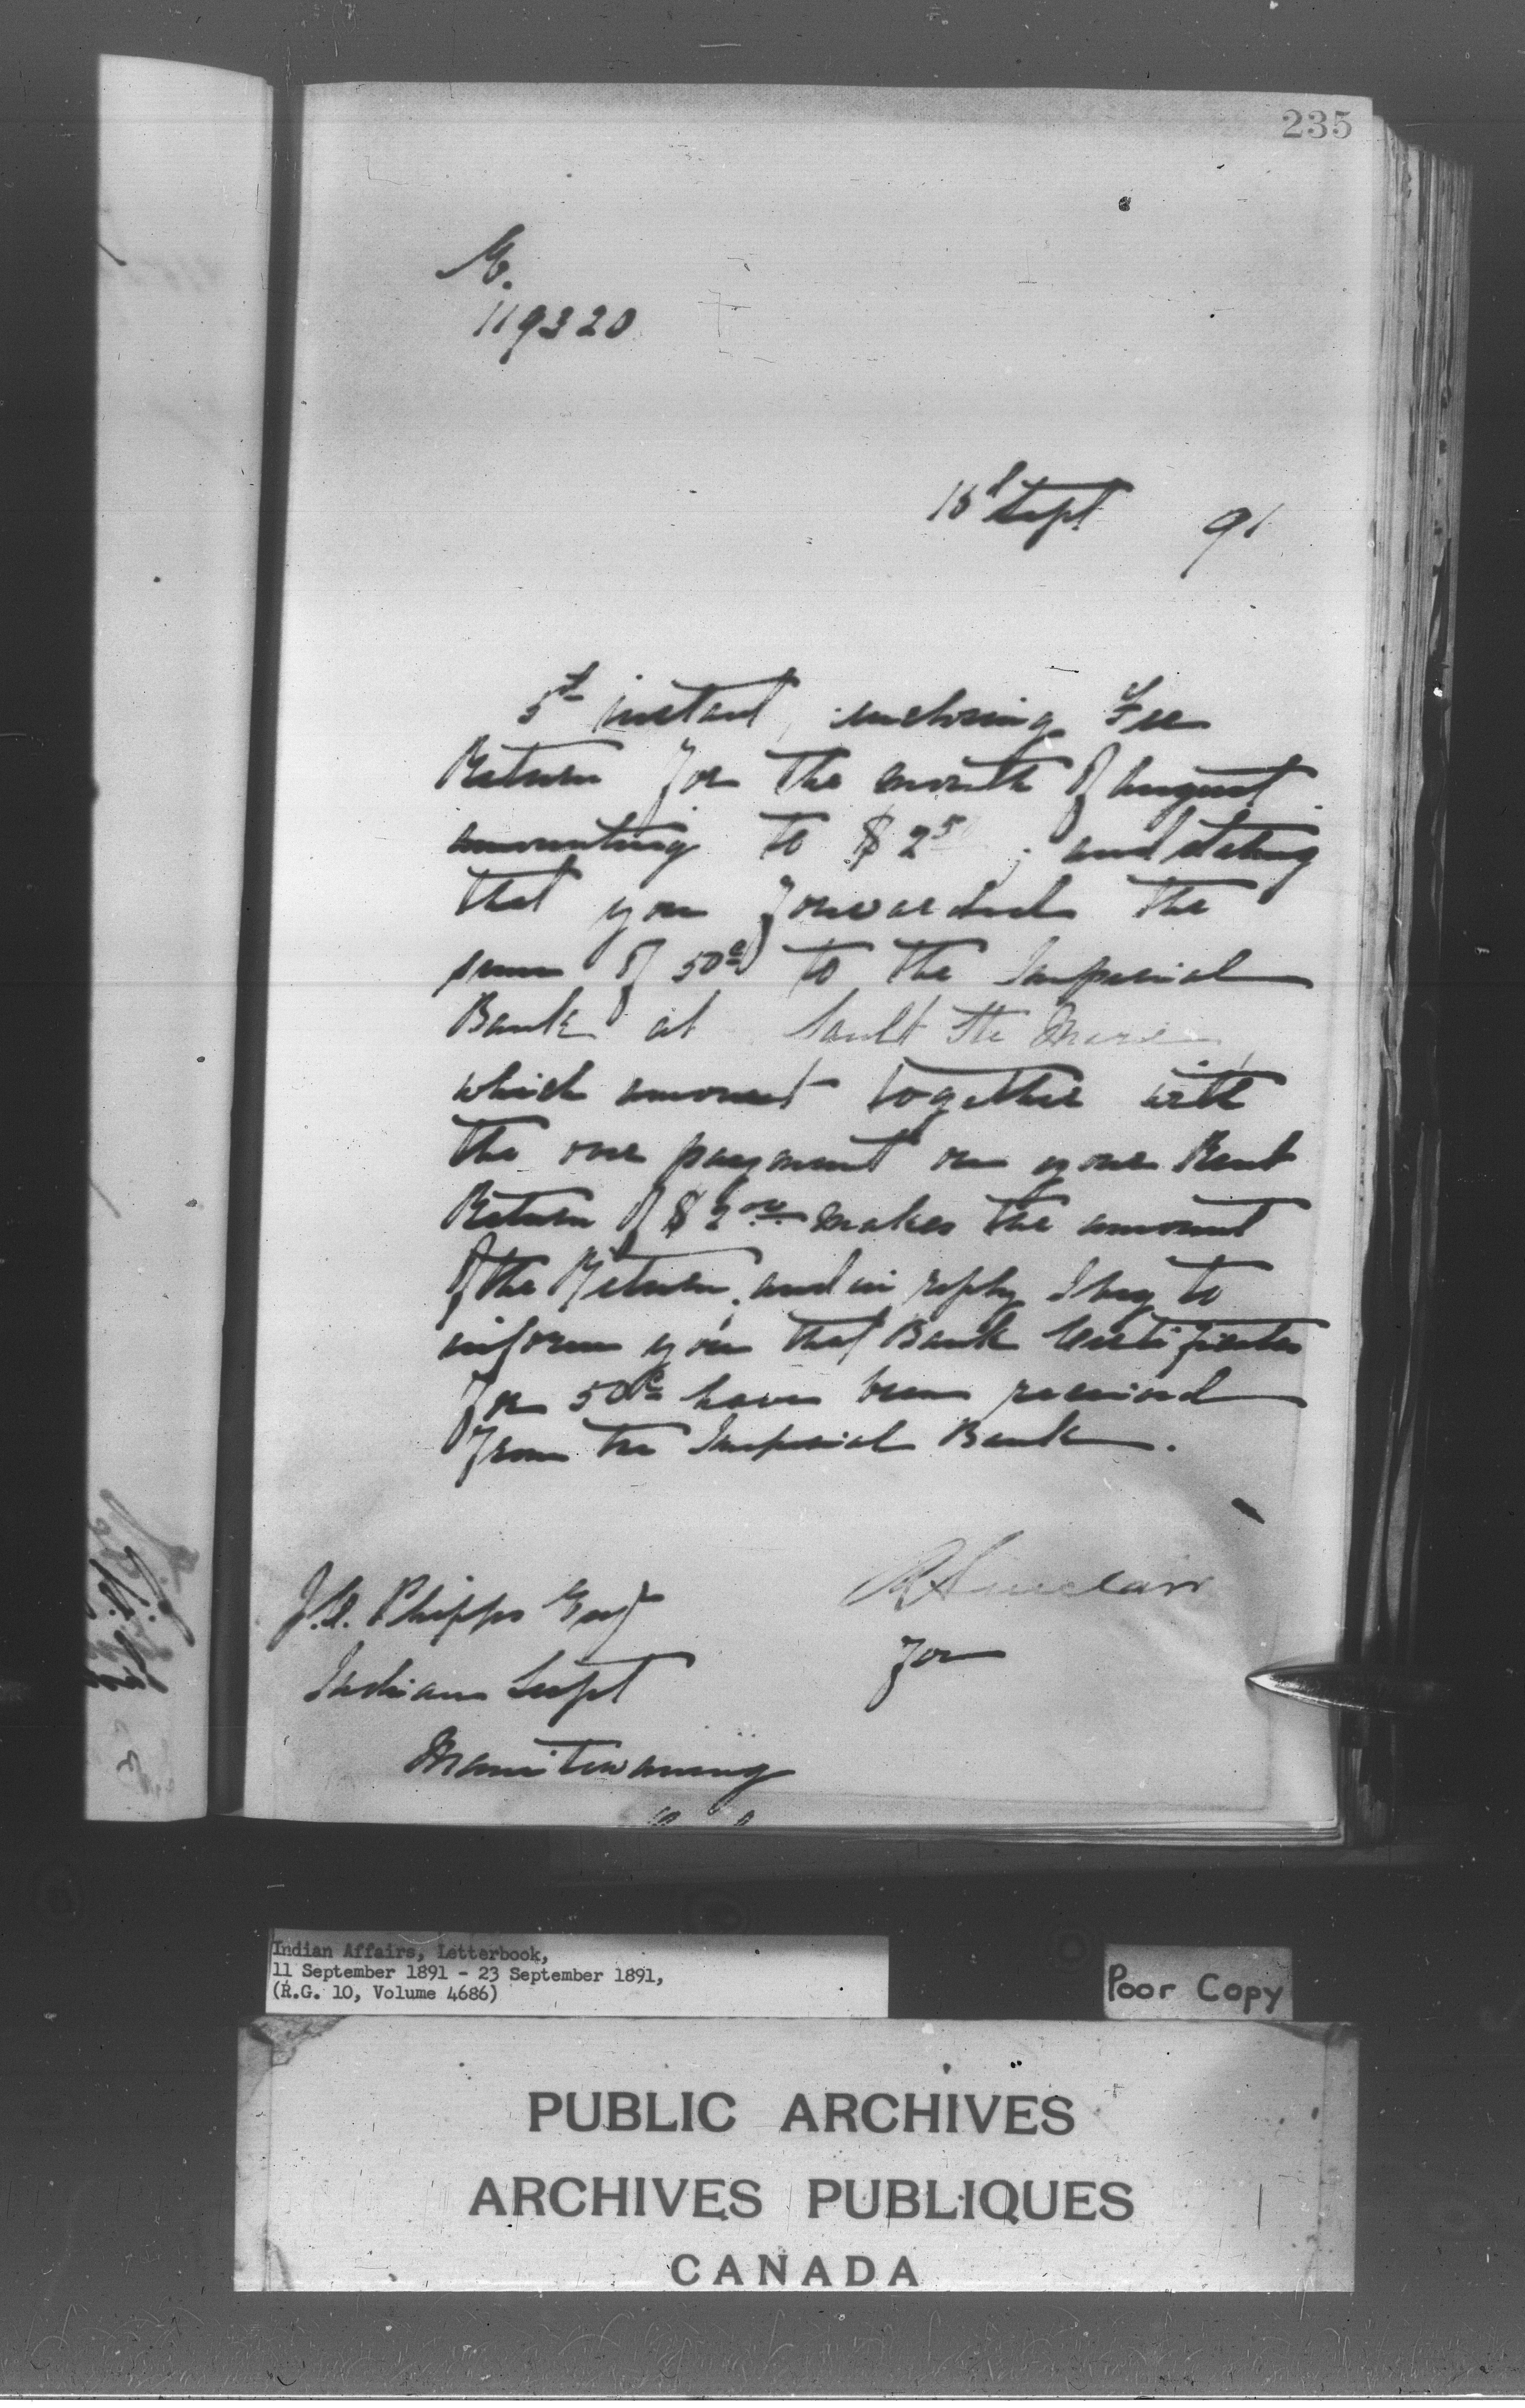 235
119320
15th Sept 91
5th instant, enclosing Fee
Return for the month of August
amounting to $2 50; and stating
that you forwarded the
sum of 50c to the Imperial
Bank at Sault Ste Marie
which amount together with
the one payment on your Rent
Return of $2 00 makes the amount
of the Return, and in reply I beg to
inform you that Bank Certificates
for 50c have been received
from the Imperial Bank.
R Sinclair
for
J.C. Phipps Esq
Indian Supt
Manitowaning
Indian Affairs, Letterbook,
11 September 1891 - 23 September 1891,
(R.G. 10, Volume 4686)
Poor Copy
PUBLIC ARCHIVES
ARCHIVES PUBLIQUES
CANADA